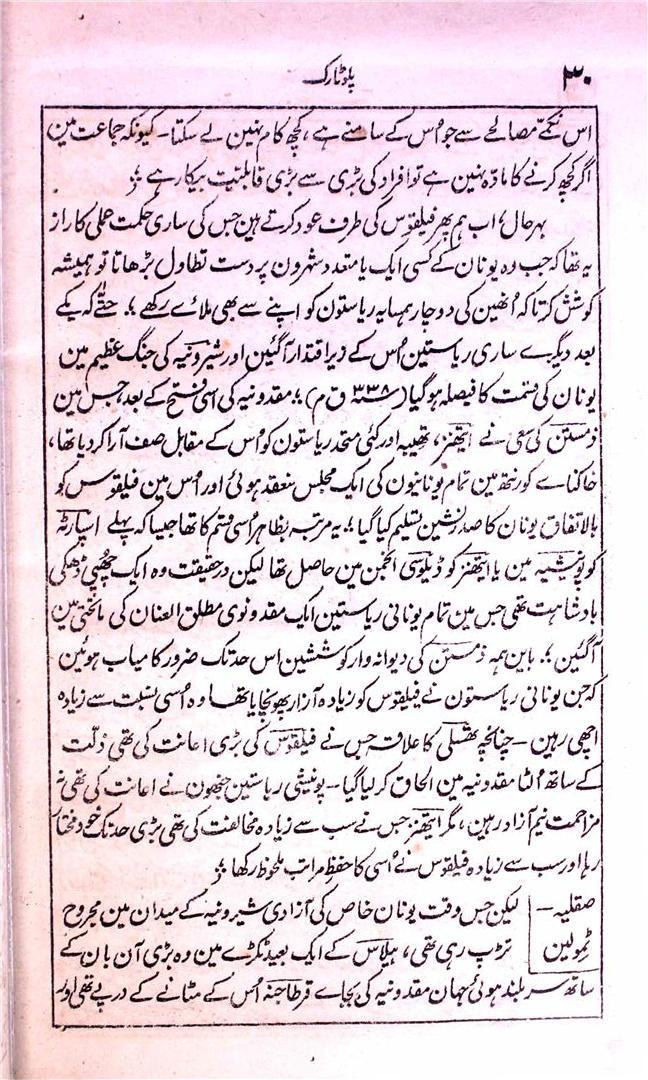 ۳۰
پلوٹارک
اس نکمّے مصالحے سے جو اُس کے سامنے ہے، کچھ کام نہین لے سکتا۔ کیونکہ جماعت مین
اگر کچھ کرنے کا مادّہ نہین ہے تو افراد کی بڑی سے بڑی قابلیت بیکار ہے ؛
بہرحال، اب ہم پھر فیلقوس کی طرف عود کرتے ہین جس کی ساری حکمت عملی کا راز
یہ تھا کہ جب وہ یونان کے کسی ایک یا متعدد شہرون پر دست تطاول بڑھاتا تو ہمیشہ
کوشش کرتا کہ اُنھین کی دو چار ہمسایہ ریاستون کو اپنے سے بھی ملائے رکھے ؛ حتّٰے کہ یکے
بعد دیگرے ساری ریاستین اُس کے زیر اقتدار آگئین اور شیرونیہ کی جنگ عظیم مین
یونان کی قسمت کا فیصلہ ہو گیا (۳۳۸ ق م) ؛ مقدونیہ کی اسی فتح کے بعد، جس مین
ذمستن کی سعی نے ایتھنز، تھیبیہ اور کئی متحد ریاستون کو اُس کے مقابل صف آرا کر دیا تھا،
خاکنائے کورنتھ مین تمام یونانیون کی ایک مجلس منعقد ہوئی اور اُس مین فیلقوس کو
بالاتفاق یونان کا صدر نشین تسلیم کیا گیا ؛ یہ مرتبہ بظاہر اُسی قسم کا تھا جیسا کہ پہلے اسپارٹہ
کو پونیشیہ مین یا ایتھنز کو ڈیلوسی انجمن مین حاصل تھا لیکن درحقیقت وہ ایک چھپی ڈھکی
بادشاہت تھی جس مین تمام یونانی ریاستین ایک مقدونوی مطلق العنان کی ماتحتی مین
آگئین ؛ باین ہمہ ذمستن کی دیوانہ وار کوششین اس حد تک ضرور کامیاب ہوئین
کہ جن یونانی ریاستون نے فیلقوس کو زیادہ آزار پہونچایا تھا وہ اُسی نسبت سے زیادہ
اچھی رہین۔ چنانچہ تھسلی کا علاقہ جس نے فیلقوس کی بڑی اعانت کی تھی ذلّت
کے ساتھ اُلٹا مقدونیہ مین الحاق کر لیا گیا۔ پونیشی ریاستین جنھون نے اعانت کی تھی نہ
مزاحمت نیم آزاد رہین، مگر ایتھنز جس نے سب سے زیادہ مخالفت کی تھی بڑی حد تک خود مختار
رہا اور سب سے زیادہ فیلقوس نے اُسی کا حفظ مراتب ملحوظ رکھا ؛
صقلیہ۔
ٹمولین
لیکن جس وقت یونان خاص کی آزادی شیرونیہ کے میدان مین مجروح
تڑپ رہی تھی، ہیلاس کے ایک بعید ٹکڑے مین وہ بڑی آن بان کے
ساتھ سر بلند ہوئی جہان مقدونیہ کی بجائے قرطاجنہ اُس کے مٹانے کے درپے تھی اور